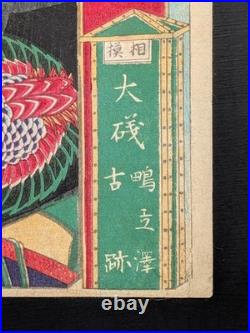 相模
大磯
鴫立澤
古跡